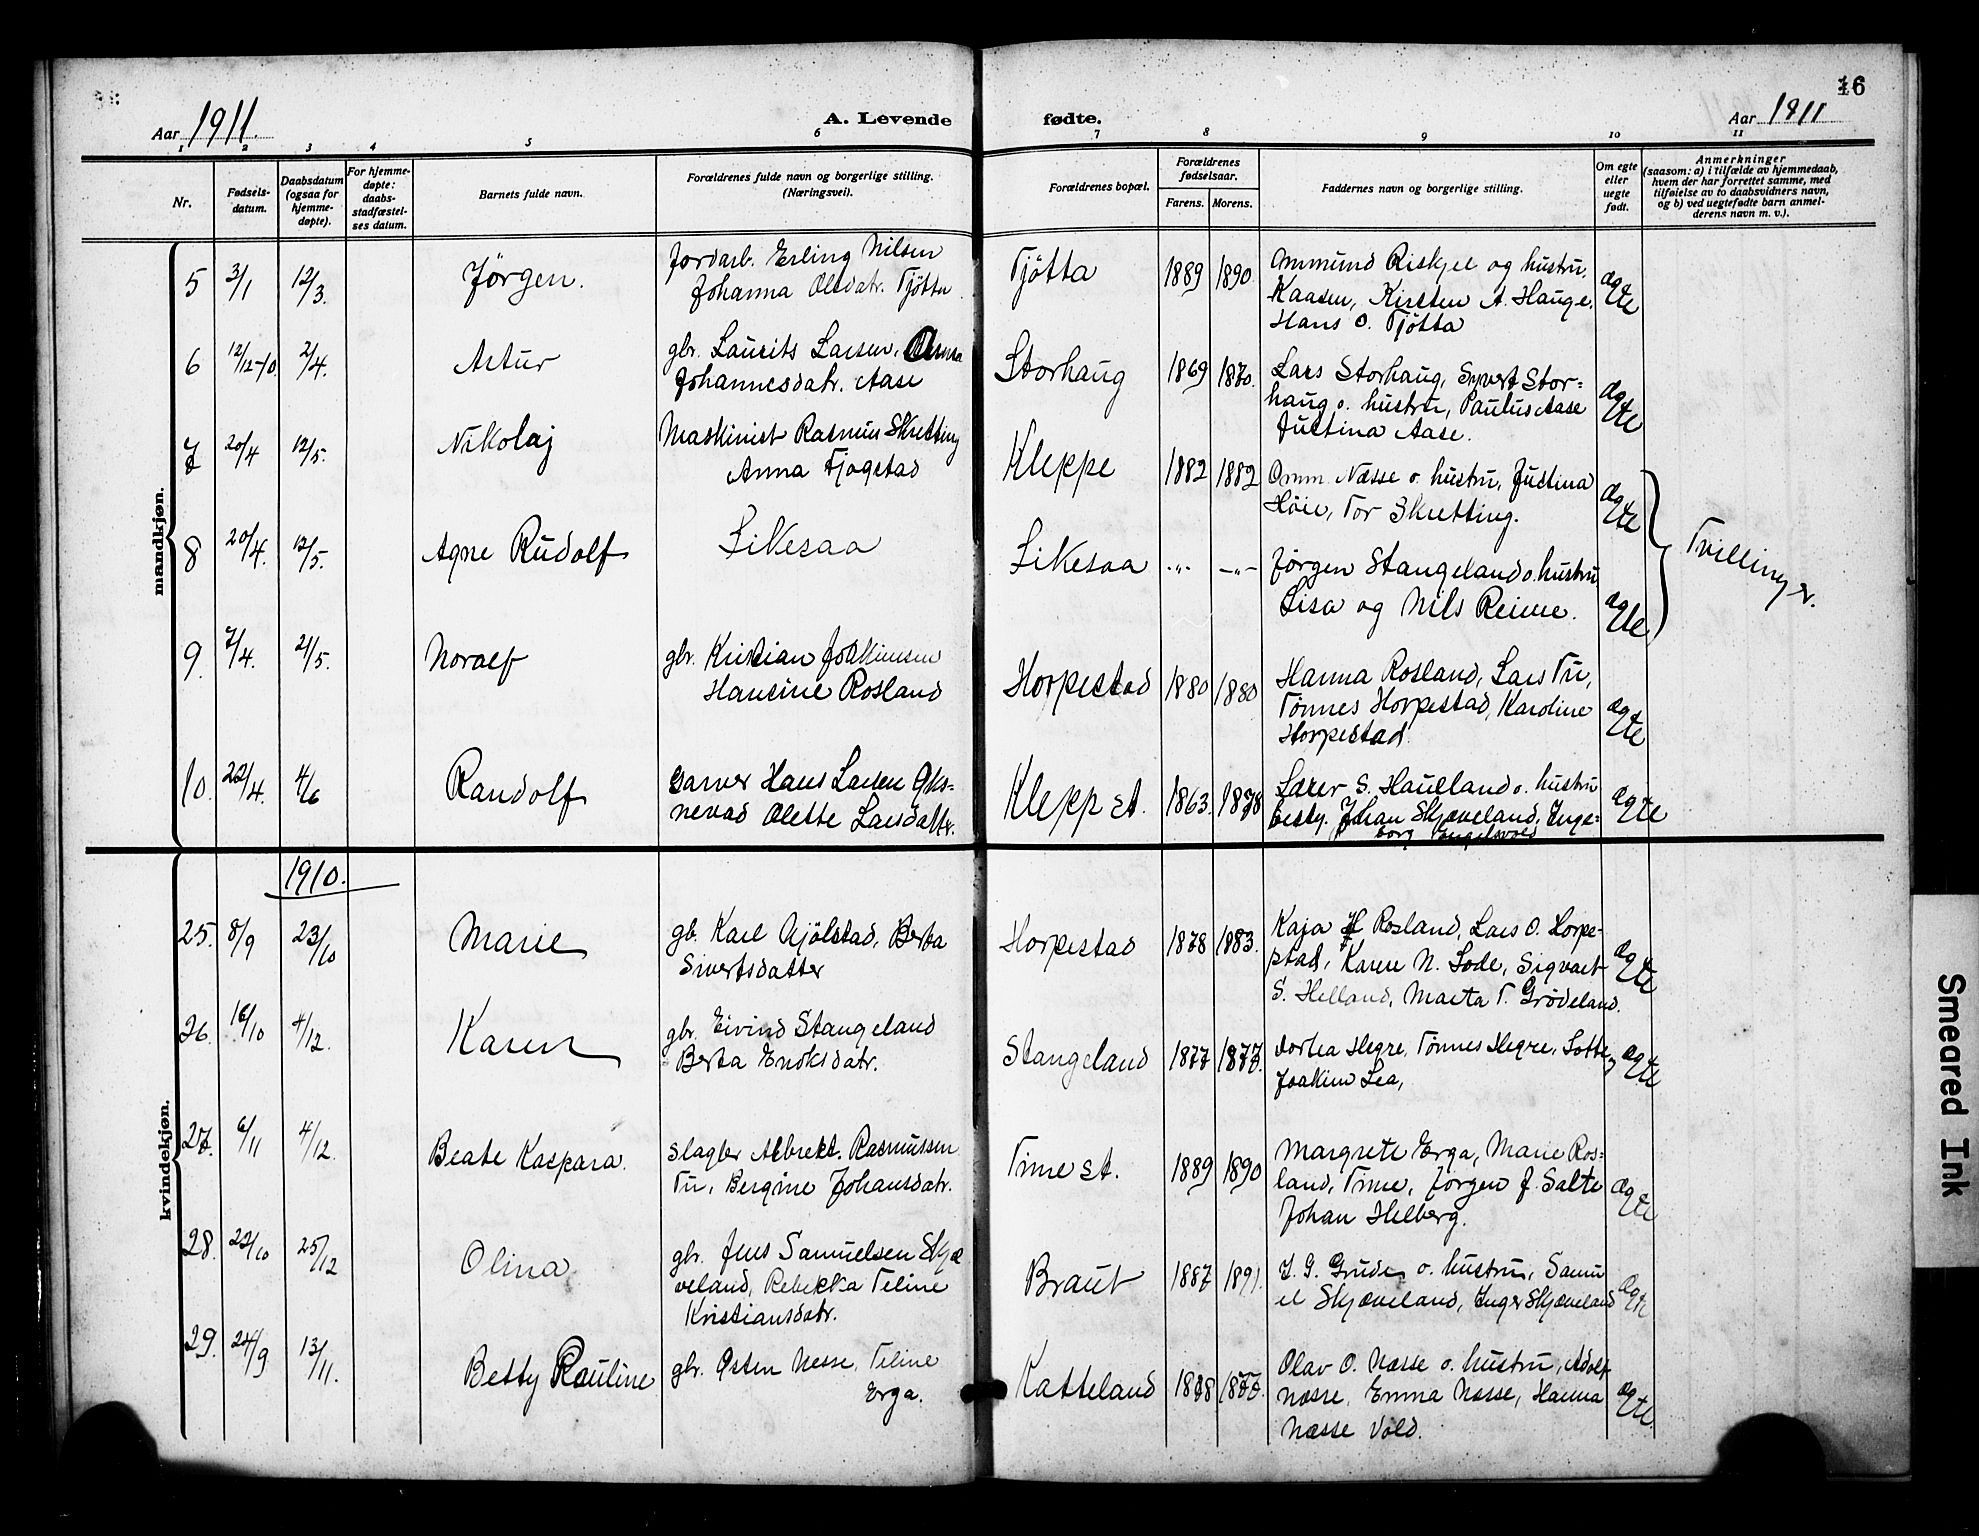 46
Aar 1911. A. Levende fødte. Aar 1911
1 2 3 4 5 6 7 8 9 10 11
Nr.
Fødsels-
datum.
Daabsdatum
(ogsaa for
hjemme-
døpte).
For hjemme-
døpte:
daabs-
stadfæstel-
ses datum.
Barnets fulde navn.
Forældrenes fulde navn og borgerlige stilling.
(Næringsvei).
Forældrenes bopæl.
Forældrenes
fødselsaar.
Farens. Morens.
Faddernes navn og borgerlige stilling.
Om egte
eller
uegte
født.
Anmerkninger
(saasom: a) i tilfælde av hjemmedaab,
hvem der har forrettet samme, med
tilføielse av to daabsvidners navn,
og b) ved uegtefødte barn anmel-
derens navn m. v.).
mandkjøn.
5 3/1 12/3. Jørgen.
Jordarb. Erling Nilsen
Johanna Olsdatr. Tjøtta
Tjøtta 1889 1890.
Ommund Riskjel og hustru,
Kaasen, Kirsten A. Hauge,
Hans O. Tjøtta
ægte
6 12/12-10. 2/4. Artur
gbr. Laurits Larsen, Anna
Johannesdatr. Aase
Storhaug 1869 1870.
Lars Storhaug, Syvert Stor=
haug o. hustru, Paulus Aase
Justina Aase.
ægte
7 20/4 12/5. Nikolaj
Maskinist Rasmus Skretting
Anna Tjøgstad
Kleppe 1882 1882
Omm. Næsse o. hustru, Justina
Høie, Tor Skretting.
ægte
8 20/4. 12/5. Agne Rudolf
Likesaa
Likesaa -"- -"-
Jørgen Stangeland o. hustru
Lisa og Nils Reime.
ægte
Tvillinger.
9. 7/4. 21/5. Noralf
gbr. Kristian Joakimsen
Hansine Rosland
Horpestad 1880 1880
Hanna Rosland, Lars Tu,
Tønnes Horpestad, Karoline
Horpestad
ægte
10. 22/4. 4/6 Randolf
Garver Hans Larsen Øks=
nevad Olette Larsdattr.
Klepp st. 1863. 1878
Lærer S. Haulland o. hustru
besty. Johan Skjæveland, Inge=
borg Engelsvold
ægte
kvindekjøn.
1910.
25. 8/9 23/10 Marie
gb. Karl Njølstad, Berta
Sivertsdatter
Horpestad 1878 1883.
Kaja H Rosland, Lars O. Horpe-
stad, Karen N. Lode, Sigvart
S. Helland, Marta T. Grødeland.
ægte
26. 16/10 4/12. Karen
gbr. Eivind Stangeland
Berta Enoksdatr.
Stangeland 1877 1877.
Dortea Hegre, Tønnes Hegre, Lotte
Joakim Lea,
ægte
27. 6/11 4/12. Beate Kaspara.
slagter Albrekt. Rasmussen
Tu, Bergine Johansdatr.
Time st. 1889 1890
Margrete Erga, Marie Ros=
land, Time, Jørgen J. Salte
Johan Helberg.
ægte
28. 22/10 25/12 Olina
gbr. Jens Samuelsen Skjæ
veland, Rebekka Teline
Kristiansdatr.
Braut 1887 1891.
J. G. Grude o. hustru, Samu
el Skjæveland, Inger Skjæveland
ægte
29. 24/9 13/11. Betty Pauline
gbr. Østen Nesse, Teline
Erga.
Katteland 1878 1877.
Olav O. Næsse o. hustru, Adolf
Næsse, Emma Næsse, Hanna
Næsse Vold.
ægte
Smeared Ink